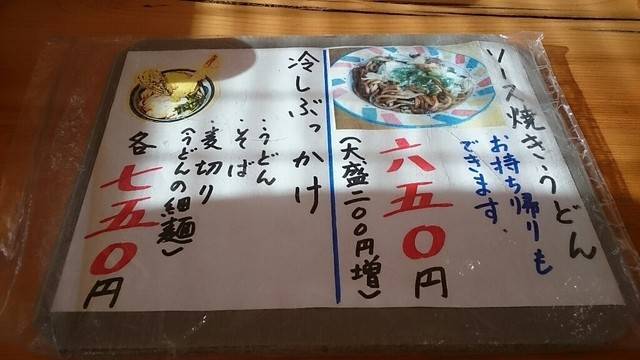 ソース焼きうどん
お持ち帰りも
できます.
六五〇円
(大盛二〇〇円増)
冷しぶっかけ
・うどん
・そば
・麦切り
(うどんの細麺)
各七五〇円